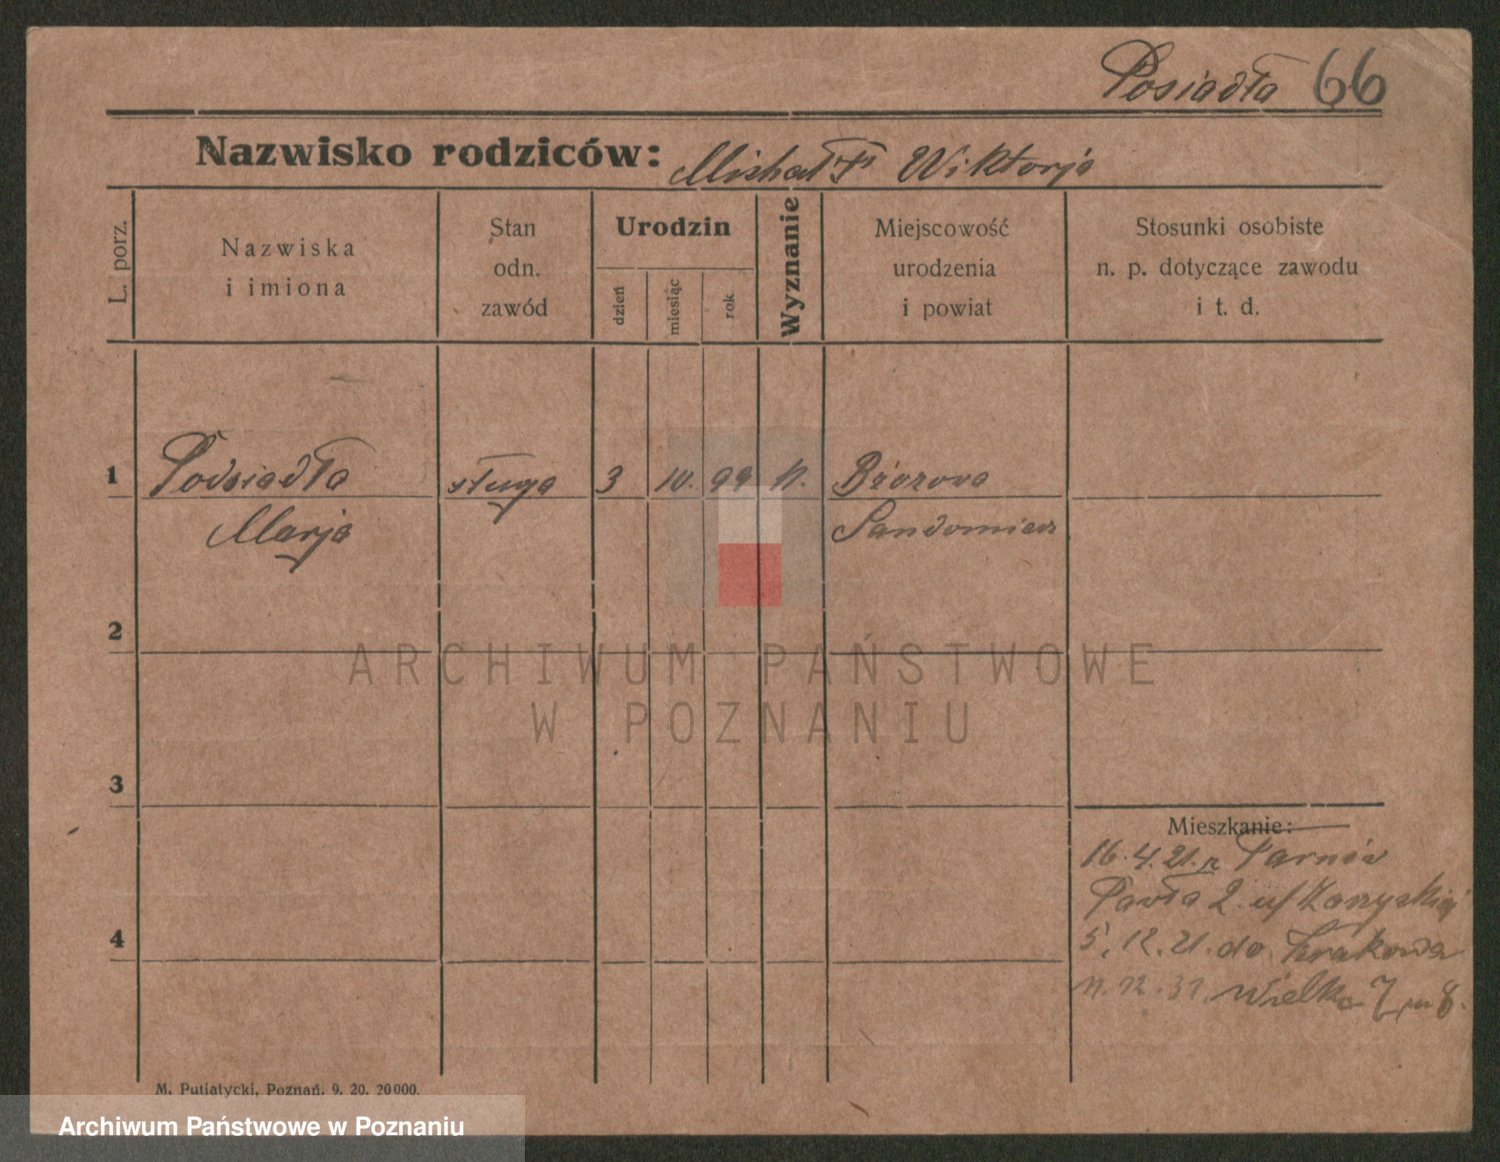 Posiadła 66
Nazwisko rodziców: Michał Wiktorja
L. porz.
Nazwiska
i imiona
Stan
odn.
zawód
Urodzin
dzień
miesiąc
rok
Wyznanie
Miejscowość
urodzenia
i powiat
Stosunki osobiste
n. p. dotyczące zawodu
i t. d.
1 Podsiadła sługa 3 10. 99 k. Brzozova
Marja Sandomierz
2
ARCHIWUM PAŃSTWOWE
W POZNANIU
3
Mieszkanie:
16.4.21. z Tarnów
Pawła 2 u/
4
5.12.21. do Krakowa
11.12.31. Wielka 7 m 8.
M. Putiatycki, Poznań. 9. 20. 20000.
Archiwum Państwowe w Poznaniu